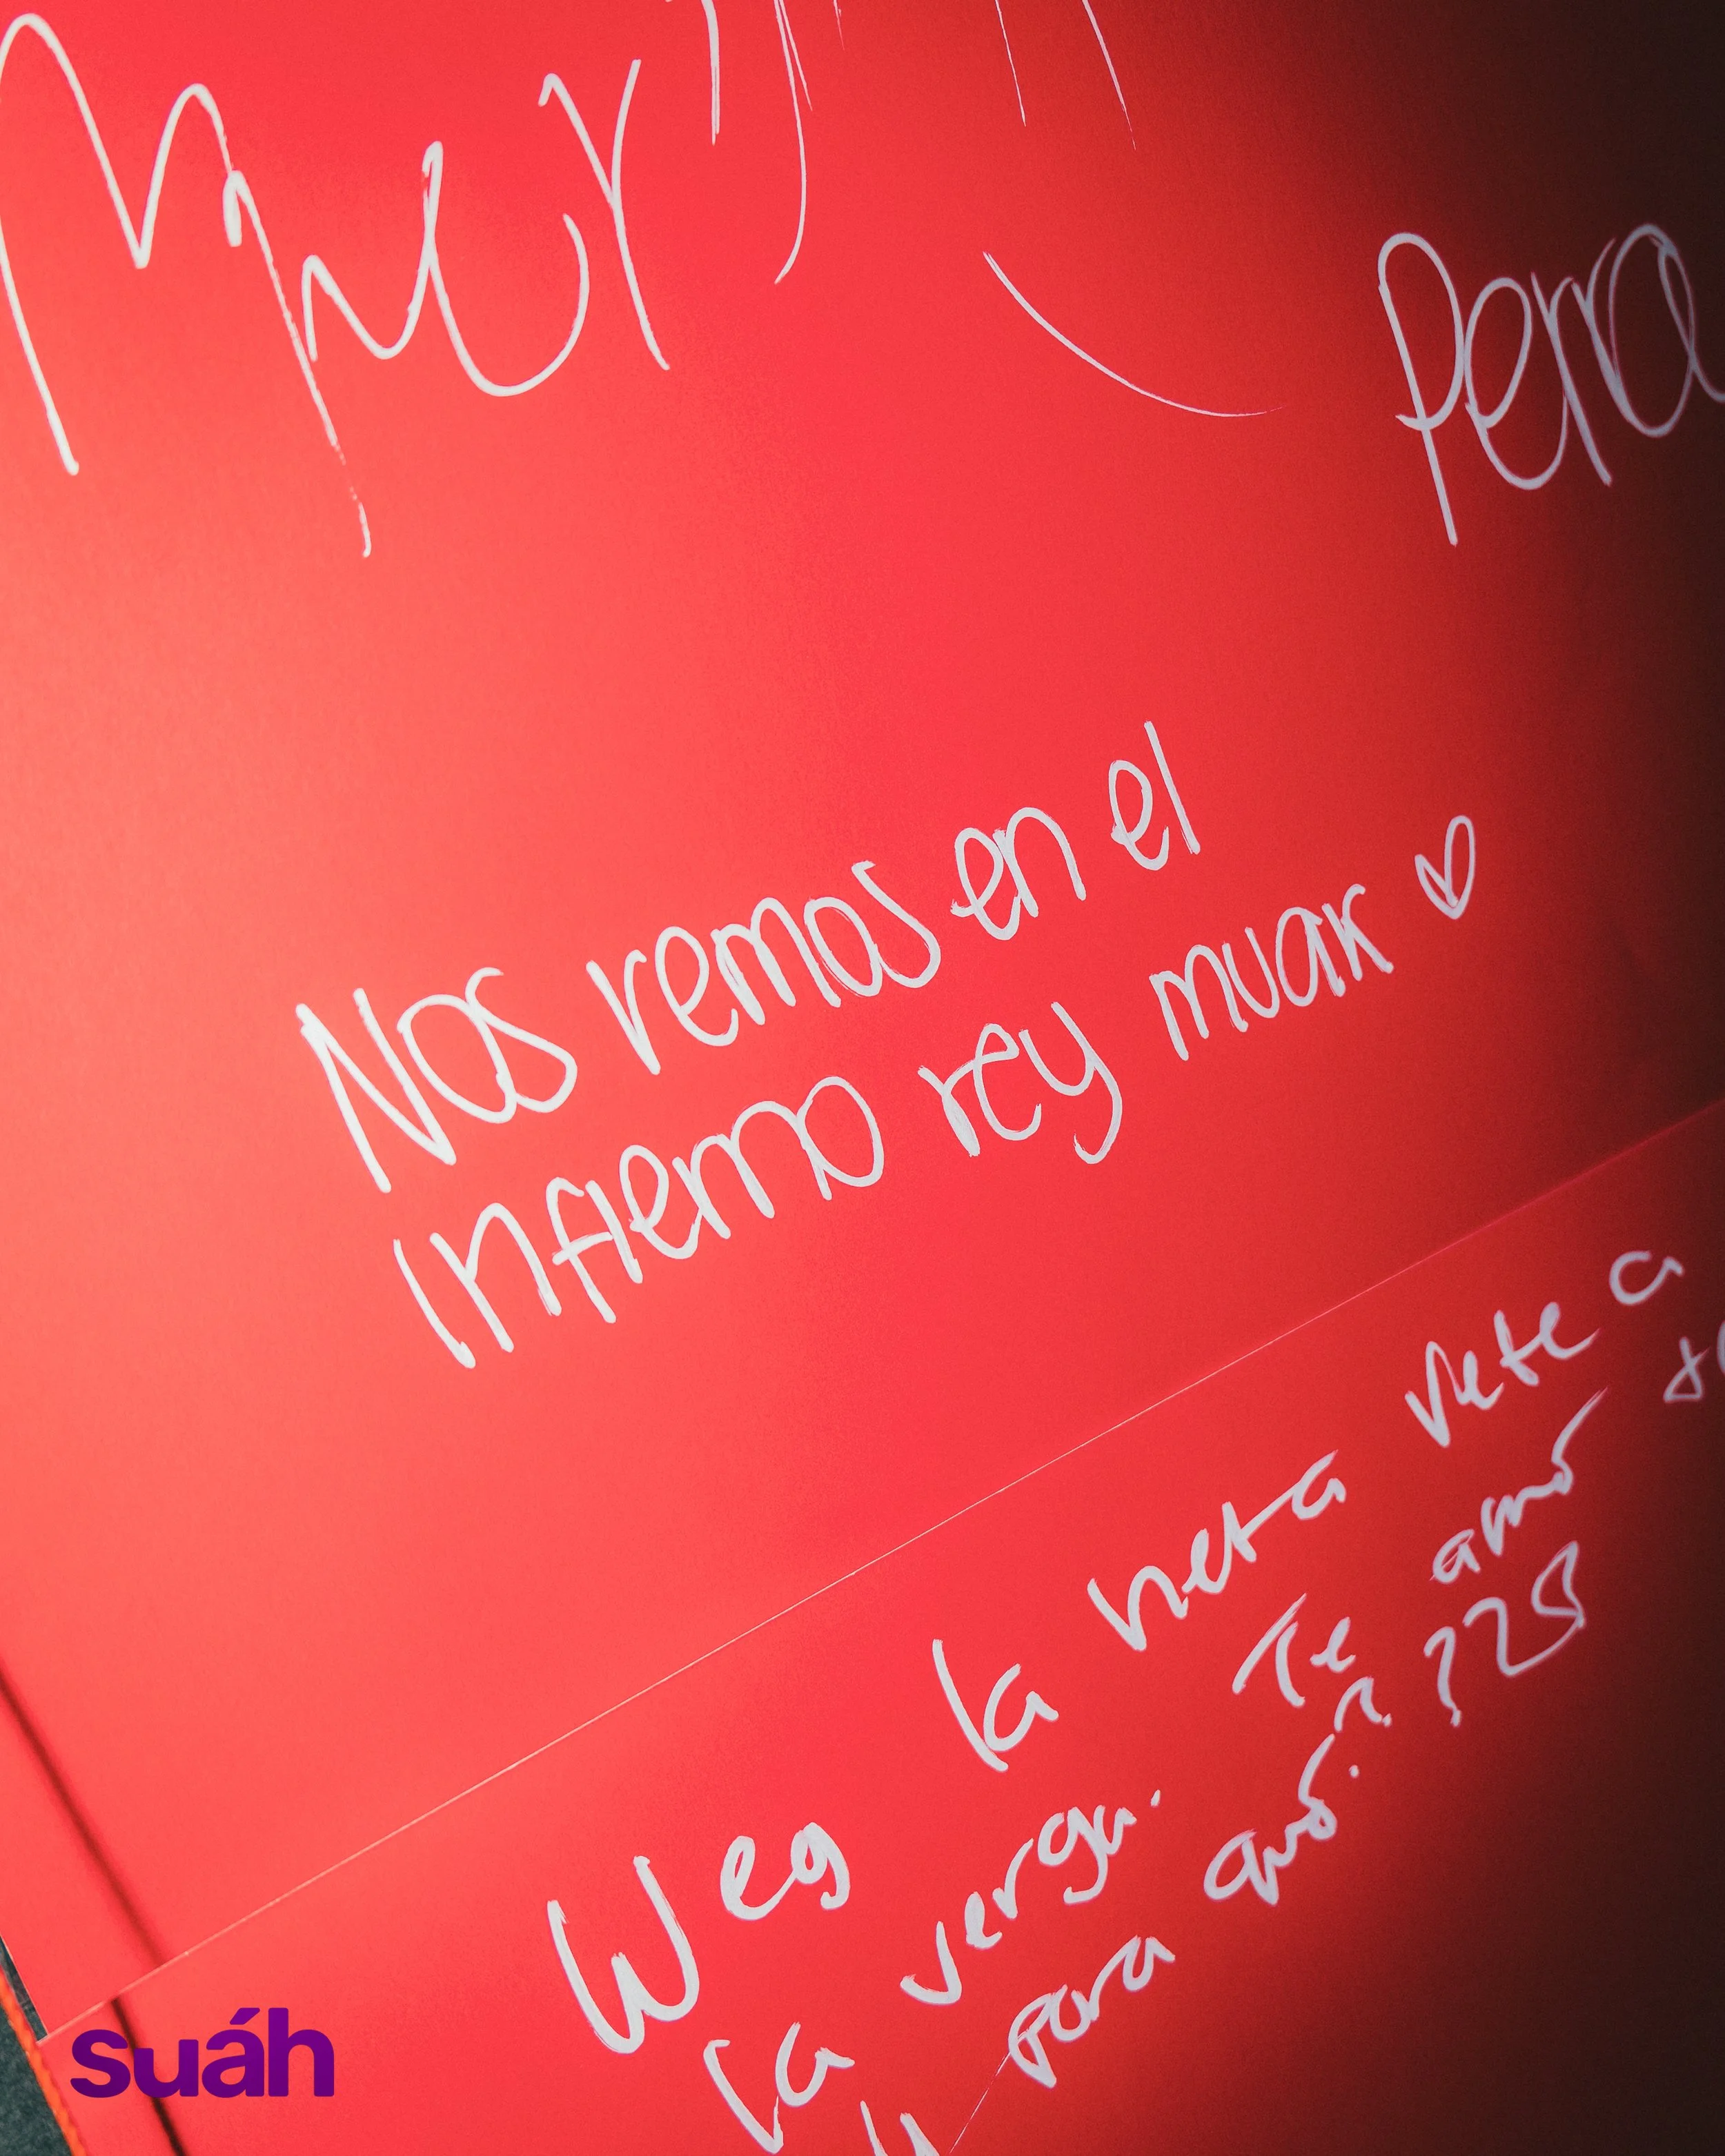 Perra
Nos vemos en el
infierno rey muak ♡
Weg la neta vete a
la verga. Te amé
para qué??
suáh